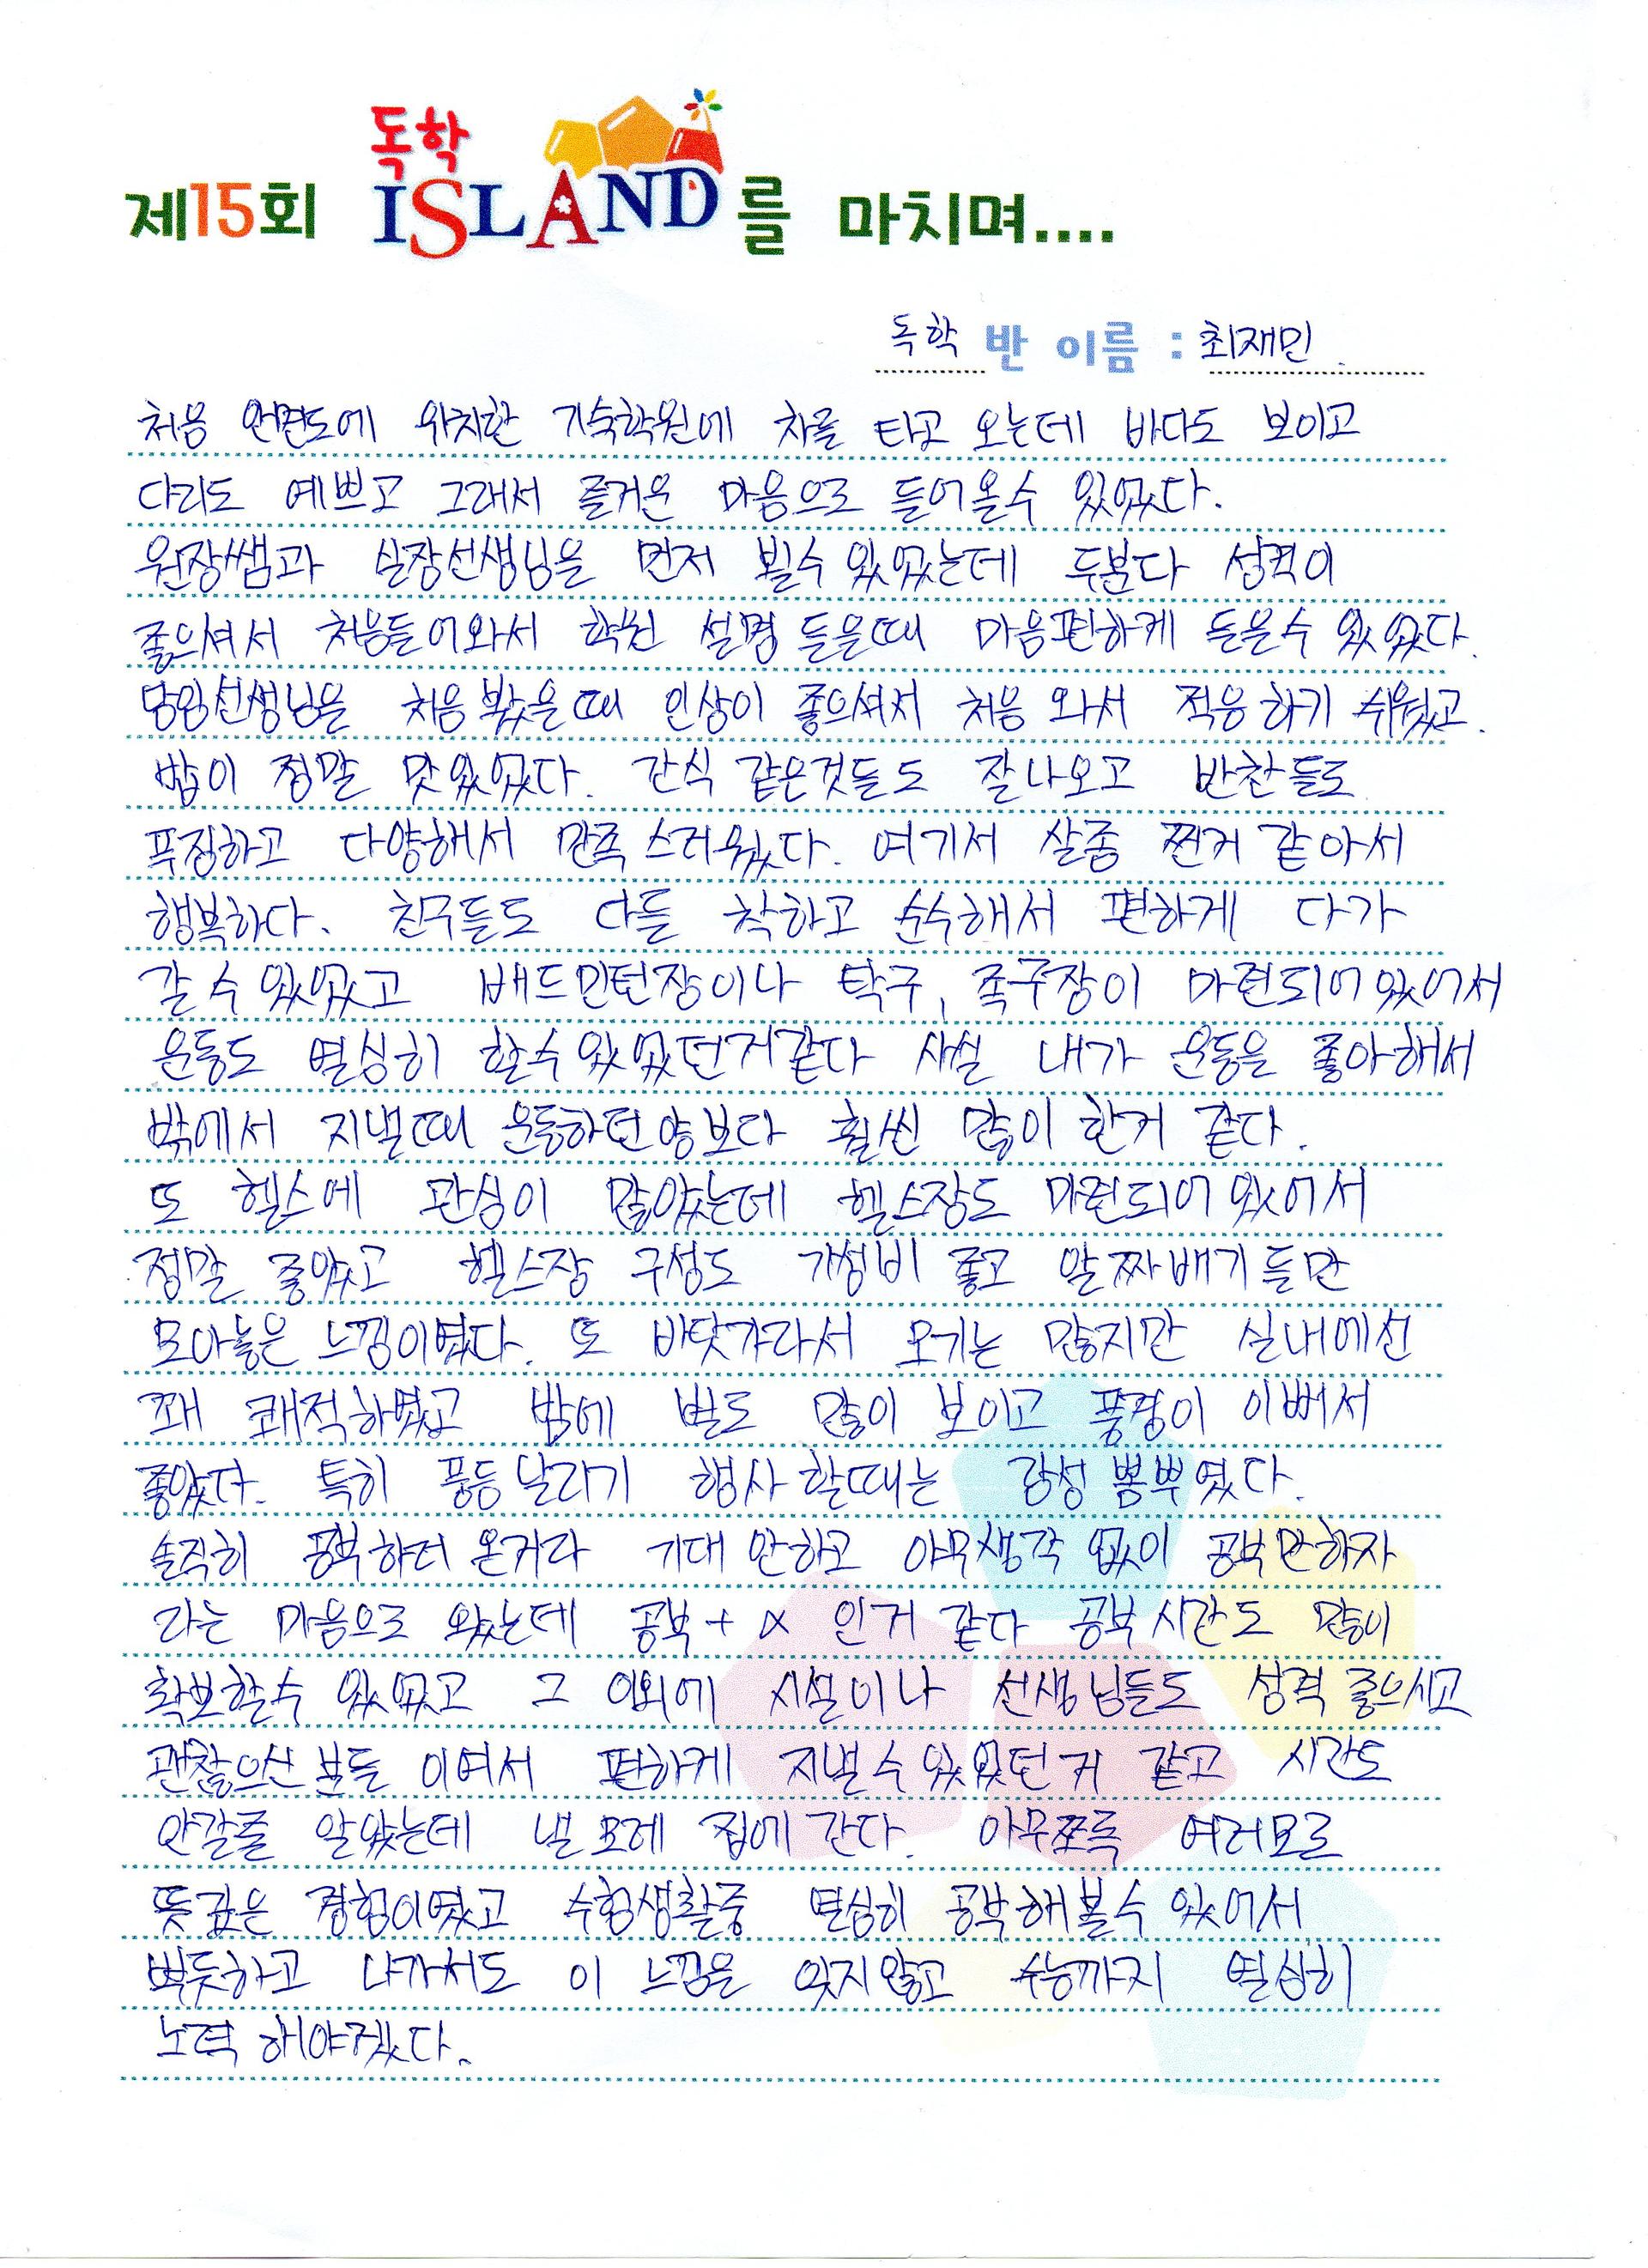 제15회 독학 ISLAND를 마치며....
독학 반 이름 : 최재민
처음 안면도에 위치한 기숙학원에 차를 타고 오는데 바다도 보이고
다리도 예쁘고 그래서 즐거운 마음으로 들어올수 있었다.
원장쌤과 실장선생님을 먼저 뵐수 있었는데 두분다 성격이
좋으셔서 처음들어와서 학원 설명 들을때 마음편하게 들을수 있었다.
담임선생님을 처음 봤을때 인상이 좋으셔서 처음 와서 적응하기 쉬웠고.
밥이 정말 맛있었다. 간식 같은것들도 잘나오고 반찬들도
푸짐하고 다양해서 만족스러웠다. 여기서 살좀 찐거 같아서
행복하다. 친구들도 다들 착하고 순수해서 편하게 다가
갈 수 있었고 배드민턴장이나 탁구, 족구장이 마련되어있어서
운동도 열심히 할수있었던거같다 사실 내가 운동을 좋아해서
밖에서 지낼때 운동하던양보다 훨씬 많이 한거 같다.
또 헬스에 관심이 많았는데 헬스장도 마련되어 있어서
정말 좋았고 헬스장 구성도 가성비 좋고 알짜배기들만
모아놓은 느낌이였다. 또 바닷가라서 모기는 많지만 실내에선
꽤 쾌적하였고 밤에 별도 많이 보이고 풍경이 이뻐서
좋았다. 특히 풍등날리기 행사 할때는 감성 뿜뿌였다.
솔직히 공부하러 온거라 기대 안하고 아무생각 없이 공부만하자
라는 마음으로 왔는데 공부 + α 인거 같다 공부시간도 많이
확보할수 있었고 그 이외에 시설이나 선생님들도 성격 좋으시고
괜찮으신 분들 이여서 편하게 지낼수있었던거 같고 시간도
안갈줄 알았는데 낼모레 집에 간다. 아무쪼록 여러모로
뜻깊은 경험이였고 수험생활중 열심히 공부해볼수 있어서
뿌듯하고 나가서도 이 느낌을 잊지않고 수능까지 열심히
노력 해야겠다.